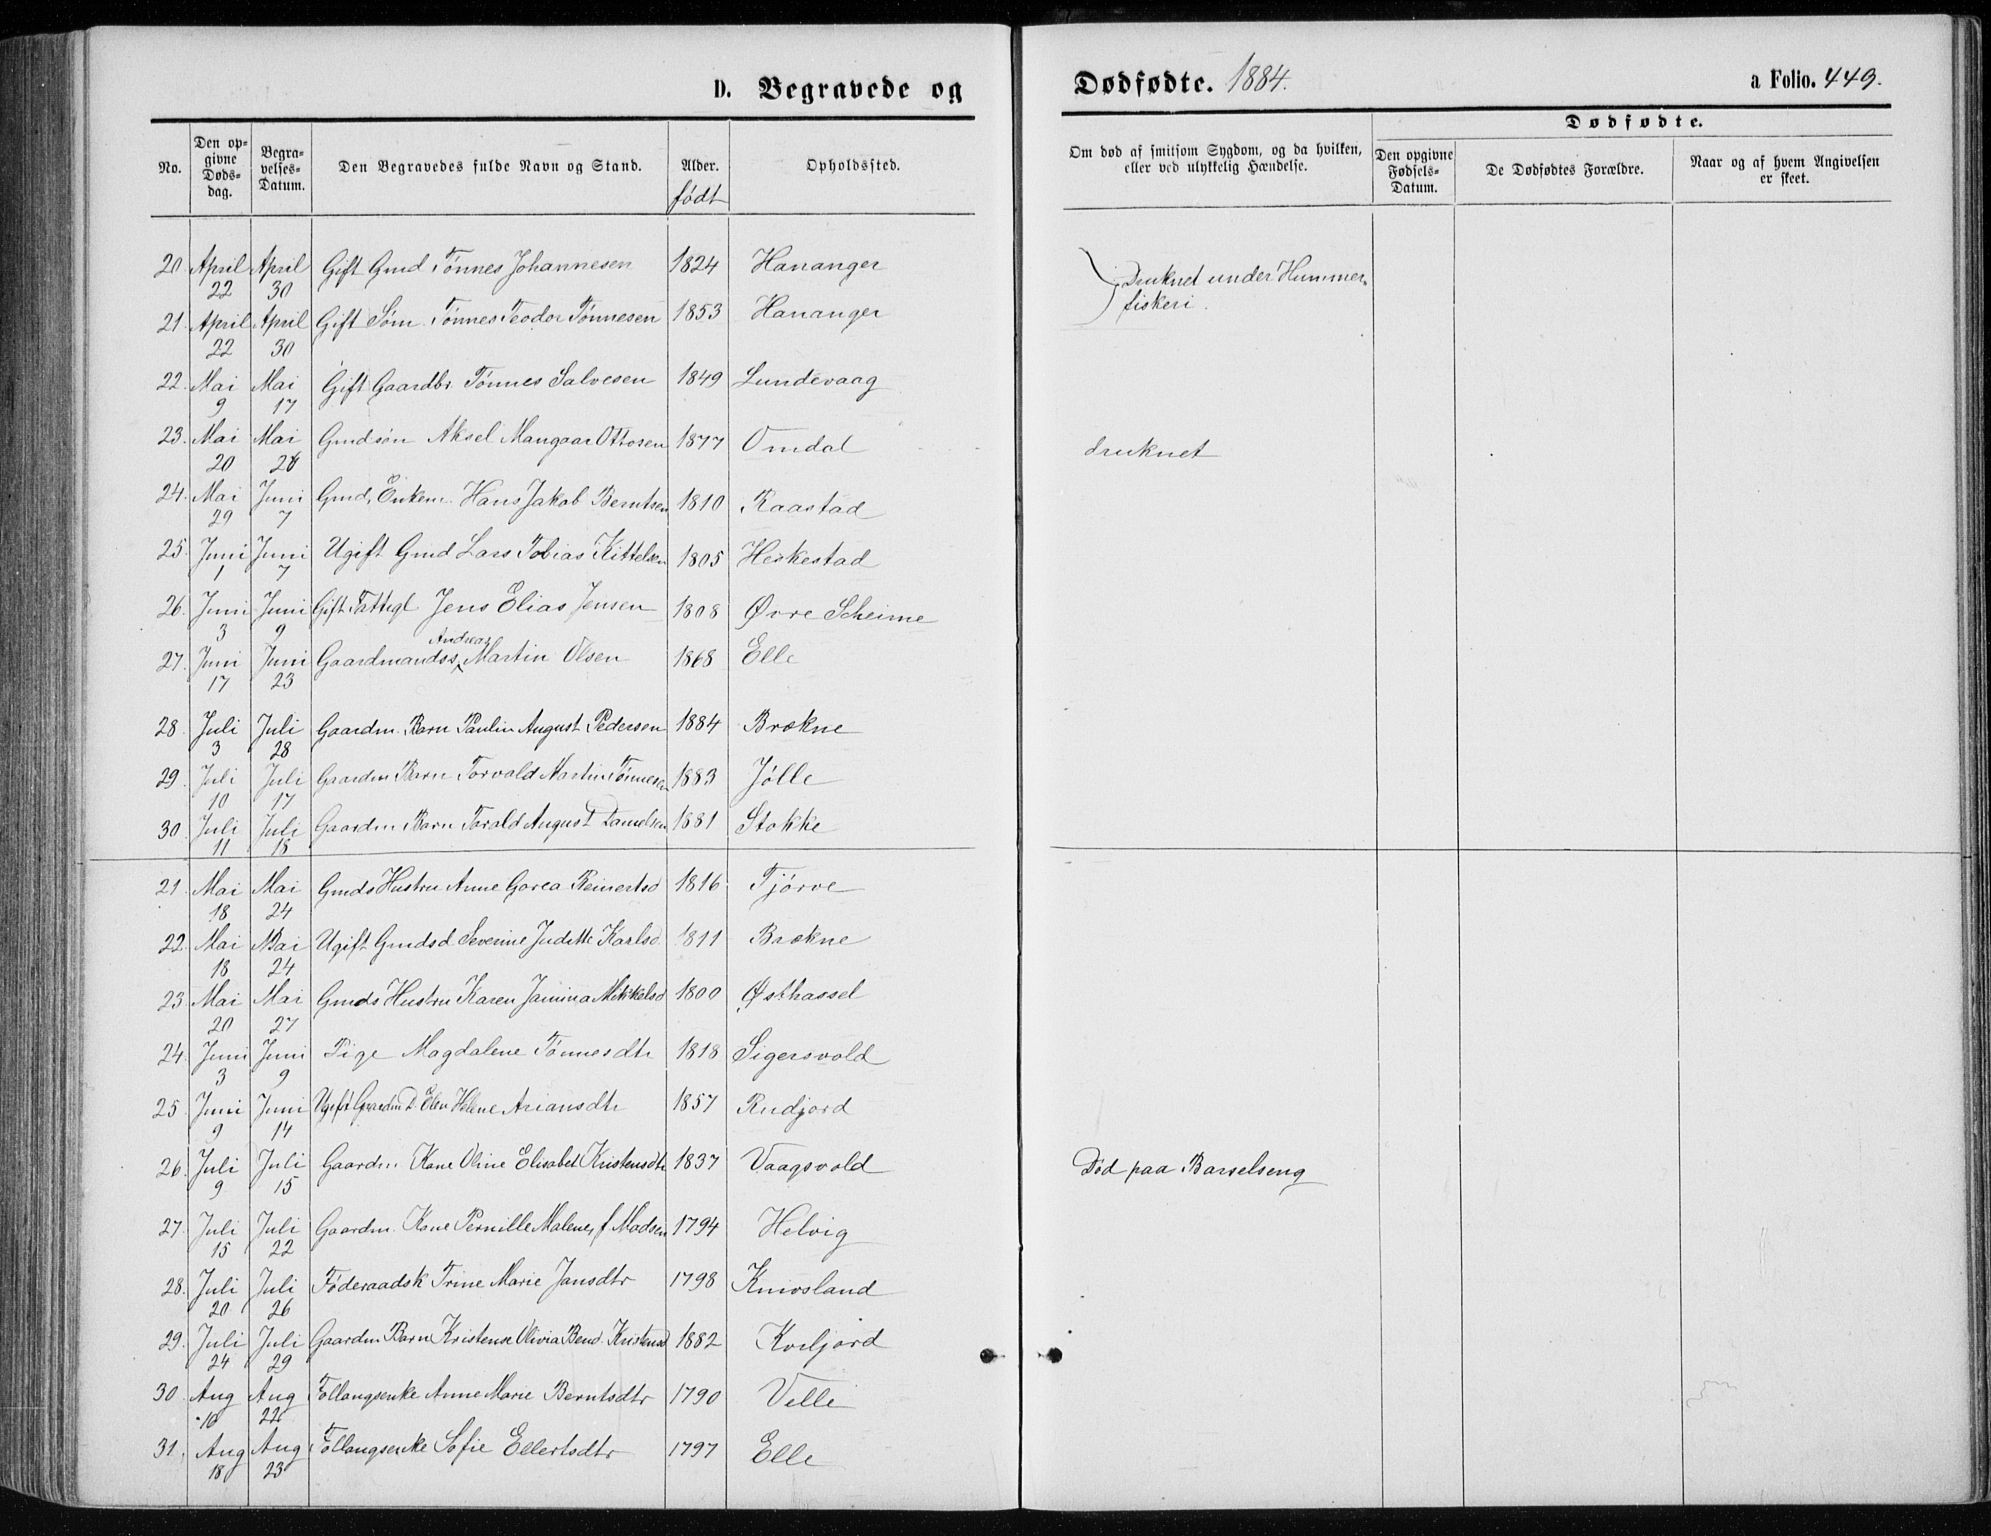 D. Begravede og
Dødfødte. 1884.
a Folio. 449.
No.
Den opgivne Dødsdag.
Begravelses-Datum.
Den Begravedes fulde Navn og Stand.
Alder.
født
Opholdssted.
Om død af smitsom Sygdom, og da hvilken, eller ved ulykkelig Hændelse.
Dødfødte.
Den opgivne Fødsels-Datum.
De Dødfødtes Forældre.
Naar og af hvem Angivelsen er skeet.
20. April 22 April 30 Gift Gmd Tønnes Johannesen 1824 Hananger Druknet under Hummer-
21. April 22 April 30 Gift Søm. Tønnes Teodor Tønnesen 1853 Hananger fiskeri.
22. Mai 9 Mai 17 Gift Gaardbr Tønnes Salvesen 1849 Lundevaag
23. Mai 20 Mai 26 Gmdsøn Aksel Mangaar Ottosen 1877 Omdal druknet
24. Mai 29 Juni 7 Gmd, Enkem. Hans Jakob Berntsen 1810 Raastad
25. Juni 1 Juni 7 Ugift Gmd Lars Tobias Kittelsen 1805 Heskestad
26. Juni 3 Juni 9 Gift Fattigl Jens Elias Jensen 1808 Øvre Scheime
27. Juni 17 Juni 23 Gaardmandss. Andreas Martin Olsen 1868 Elle
28. Juli 3 Juli 28 Gaardm. Barn Paulin August Pedersen 1884 Brækne
29. Juli 10 Juli 17 Gaardm Barn Torvald Martin Tønnesen 1883 Jølle
30. Juli 11 Juli 18 Gaardm Barn Torald August Danielsen 1881 Stokke
21. Mai 18 Mai 24 Gmds Hustru Anne Gorea Reinertsd 1816 Tjørve
22. Mai 18 Mai 24 Ugift Gmdsd Severine Juditte Karlsd. 1811 Brækne
23. Mai 20 Mai 27 Gmds Hustru Karen Janina Mikkelsd 1800 Østhassel
24. Juni 3 Juni 9 Pige Magdalene Tønnesdtr 1818 Sigersvold
25. Juni 9 Juni 14 Ugift Gaardm D. Elen Helene Ariansdtr 1857 Rudjord
26. Juli 9 Juli 15 Gaardm. Kone Oline Elisabet Kristensdtr 1837 Vaagsvold Død paa Barselseng
27. Juli 15 Juli 22 Gaardm. Kone Pernille Malene, f Madsen 1794 Helvig
28. Juli 20 Juli 26 Føderaadsk Trine Marie Jansdtr 1798 Knivsland
29. Juli 24 Juli 29 Gaardm Barn Kristense Olivia Kristensd 1882 Kviljord
30. Aug 10 Aug 22 Follaugsenke Anne Marie Berntsdtr 1790 Velle
31. Aug 18 Aug 23 Follaugsenke Sofie Ellertsdtr 1797 Elle